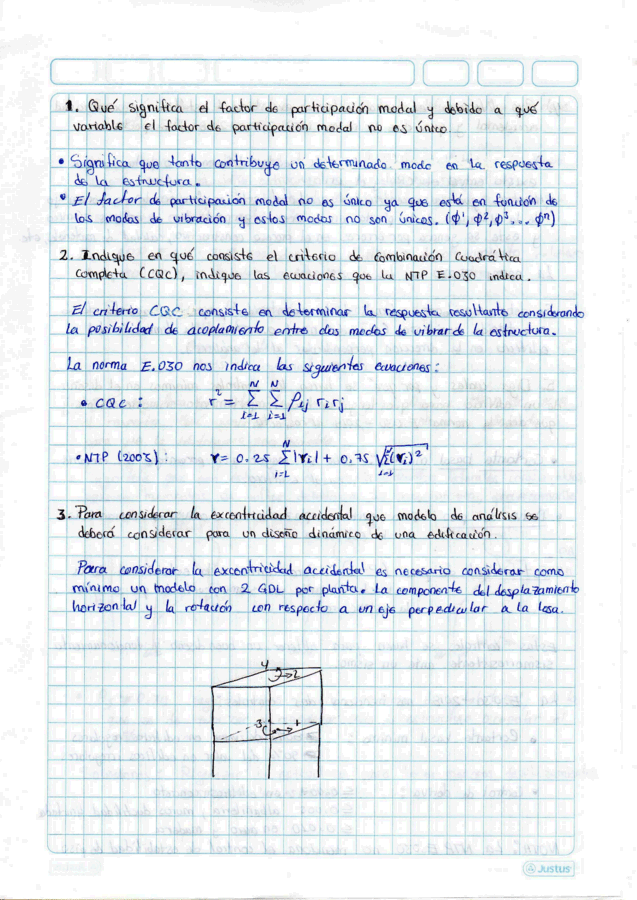 1. Qué significa el factor de participación modal y debido a qué
variable el factor de participación modal no es único.
• Significa que tanto contribuye un determinado modo en la respuesta
de la estructura.
• El factor de participación modal no es único ya que está en función de
los modos de vibración y estos modos no son únicos. (ϕ¹, ϕ², ϕ³... ϕⁿ)
2. Indique en qué consiste el criterio de Combinación Cuadrática
Completa (CQC), indique las ecuaciones que la NTP E.030 indica.
El criterio CQC consiste en determinar la respuesta resultante considerando
la posibilidad de acoplamiento entre dos modos de vibrar de la estructura.
La norma E.030 nos indica las siguientes ecuaciones:
• CQC : r² = Σ(i=1, N) Σ(i=1, N) ρij ri rj
• NTP (2003) : r = 0.25 Σ(i=1, N) |ri| + 0.75 √Σ(i=1) (ri)²
3. Para considerar la excentricidad accidental que modelo de análisis se
deberá considerar para un diseño dinámico de una edificación.
Para considerar la excentricidad accidental es necesario considerar como
mínimo un modelo con 2 GDL por planta. La componente del desplazamiento
horizontal y la rotación con respecto a un eje perpedicular a la losa.
4
2
3
1
Justus